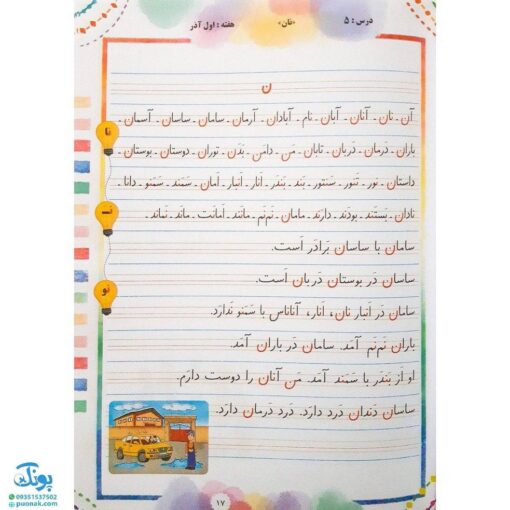 درس : ۵
«نان»
هفته : اول آذر
ن
آن ـ نان ـ آنان ـ آبان ـ نام ـ آبادان ـ آرمان ـ سامان ـ ساسان ـ آسمان ـ
باران ـ دَرمان ـ دَربان ـ تابان ـ مَن ـ دامَن ـ بَدَن ـ توران ـ دوستان ـ بوستان ـ
داستان ـ نور ـ تَنور ـ سَنتور ـ بَند ـ بَندَر ـ اَنار ـ اَنبار ـ اَمان ـ سَمَند ـ سَمَنو ـ دانا ـ
نادان ـ بَستَند ـ بودَند ـ دارَند ـ مامان ـ نَم‌نَم ـ مانَند ـ اَمانَت ـ مانَد ـ نَمانَد ـ
سامان با ساسان بَرادَر اَست.
ساسان دَر بوستان دَربان اَست.
سامان دَر اَنبار نان، اَنار، آناناس با سَمَنو نَدارَد.
باران نَم‌نَم آمَد. سامان دَر باران آمَد.
او اَز بَندَر با سَمَند آمَد. مَن آنان را دوست دارَم.
ساسان دَندان دَرد دارَد. دَرد دَرمان دارَد.
نا
نـَ
نو
۱۷
پونک
09351537502
puonak.com